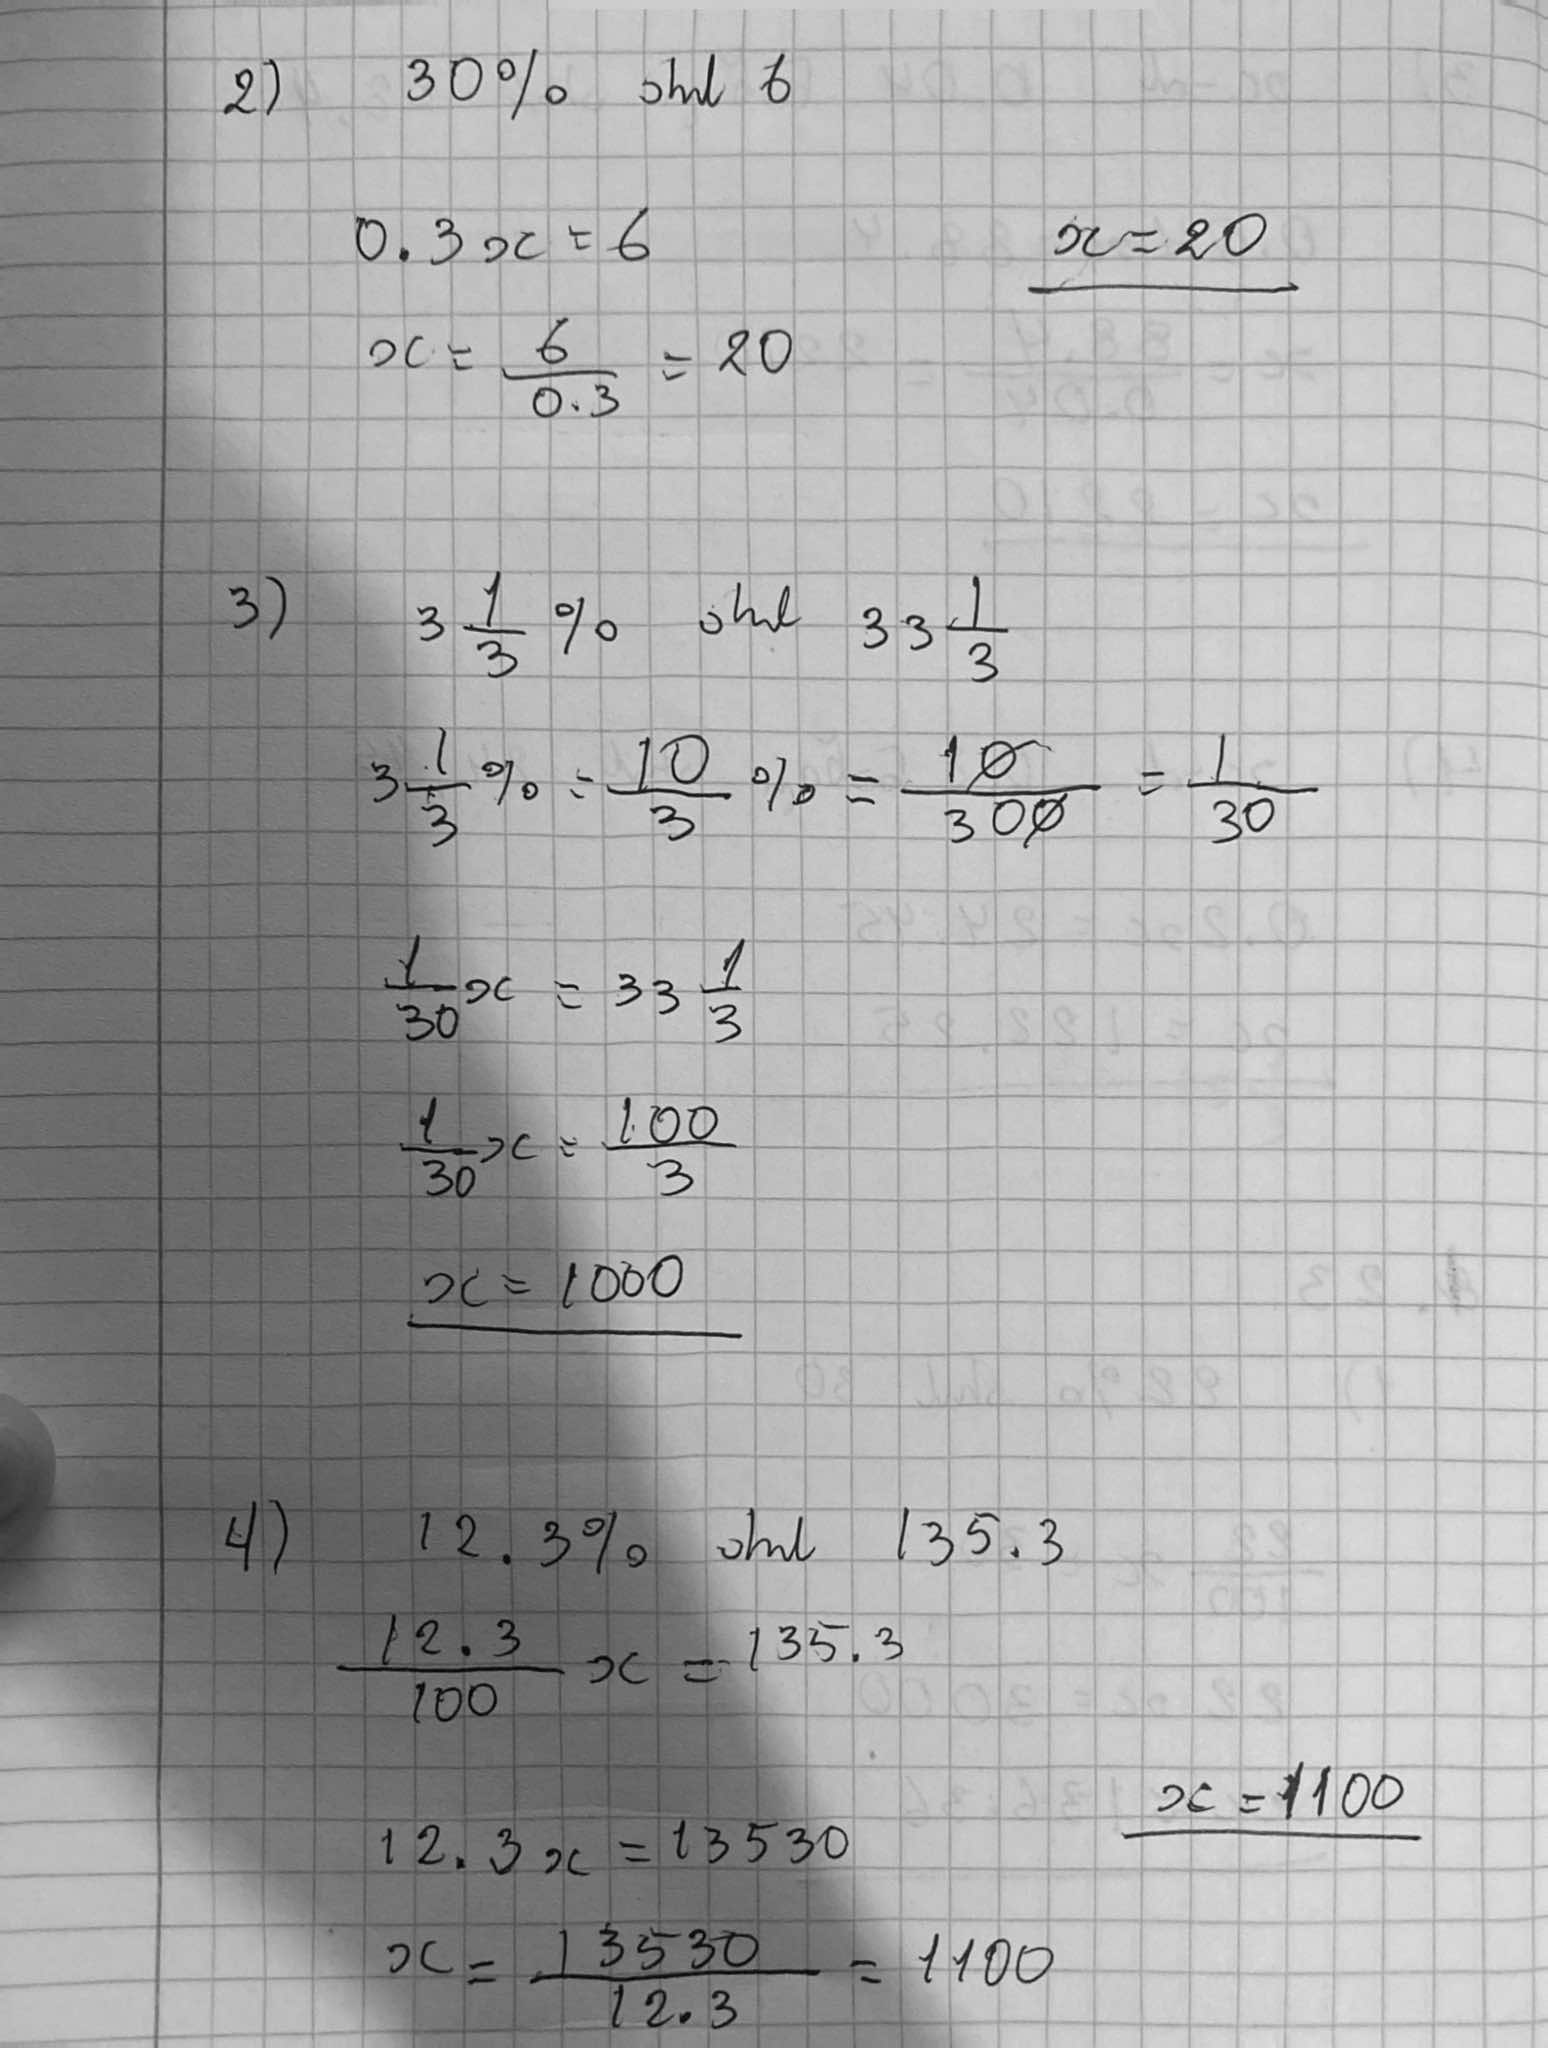 2) 30%  6
0.3x = 6
x = 20
x = 6/0.3 = 20
3) 3 1/3 %  33 1/3
3 1/3 % = 10/3 % = 10/300 = 1/30
1/30 x = 33 1/3
1/30 x = 100/3
x = 1000
4) 12.3%  135.3
12.3/100 x = 135.3
x = 1100
12.3x = 13530
x = 13530/12.3 = 1100